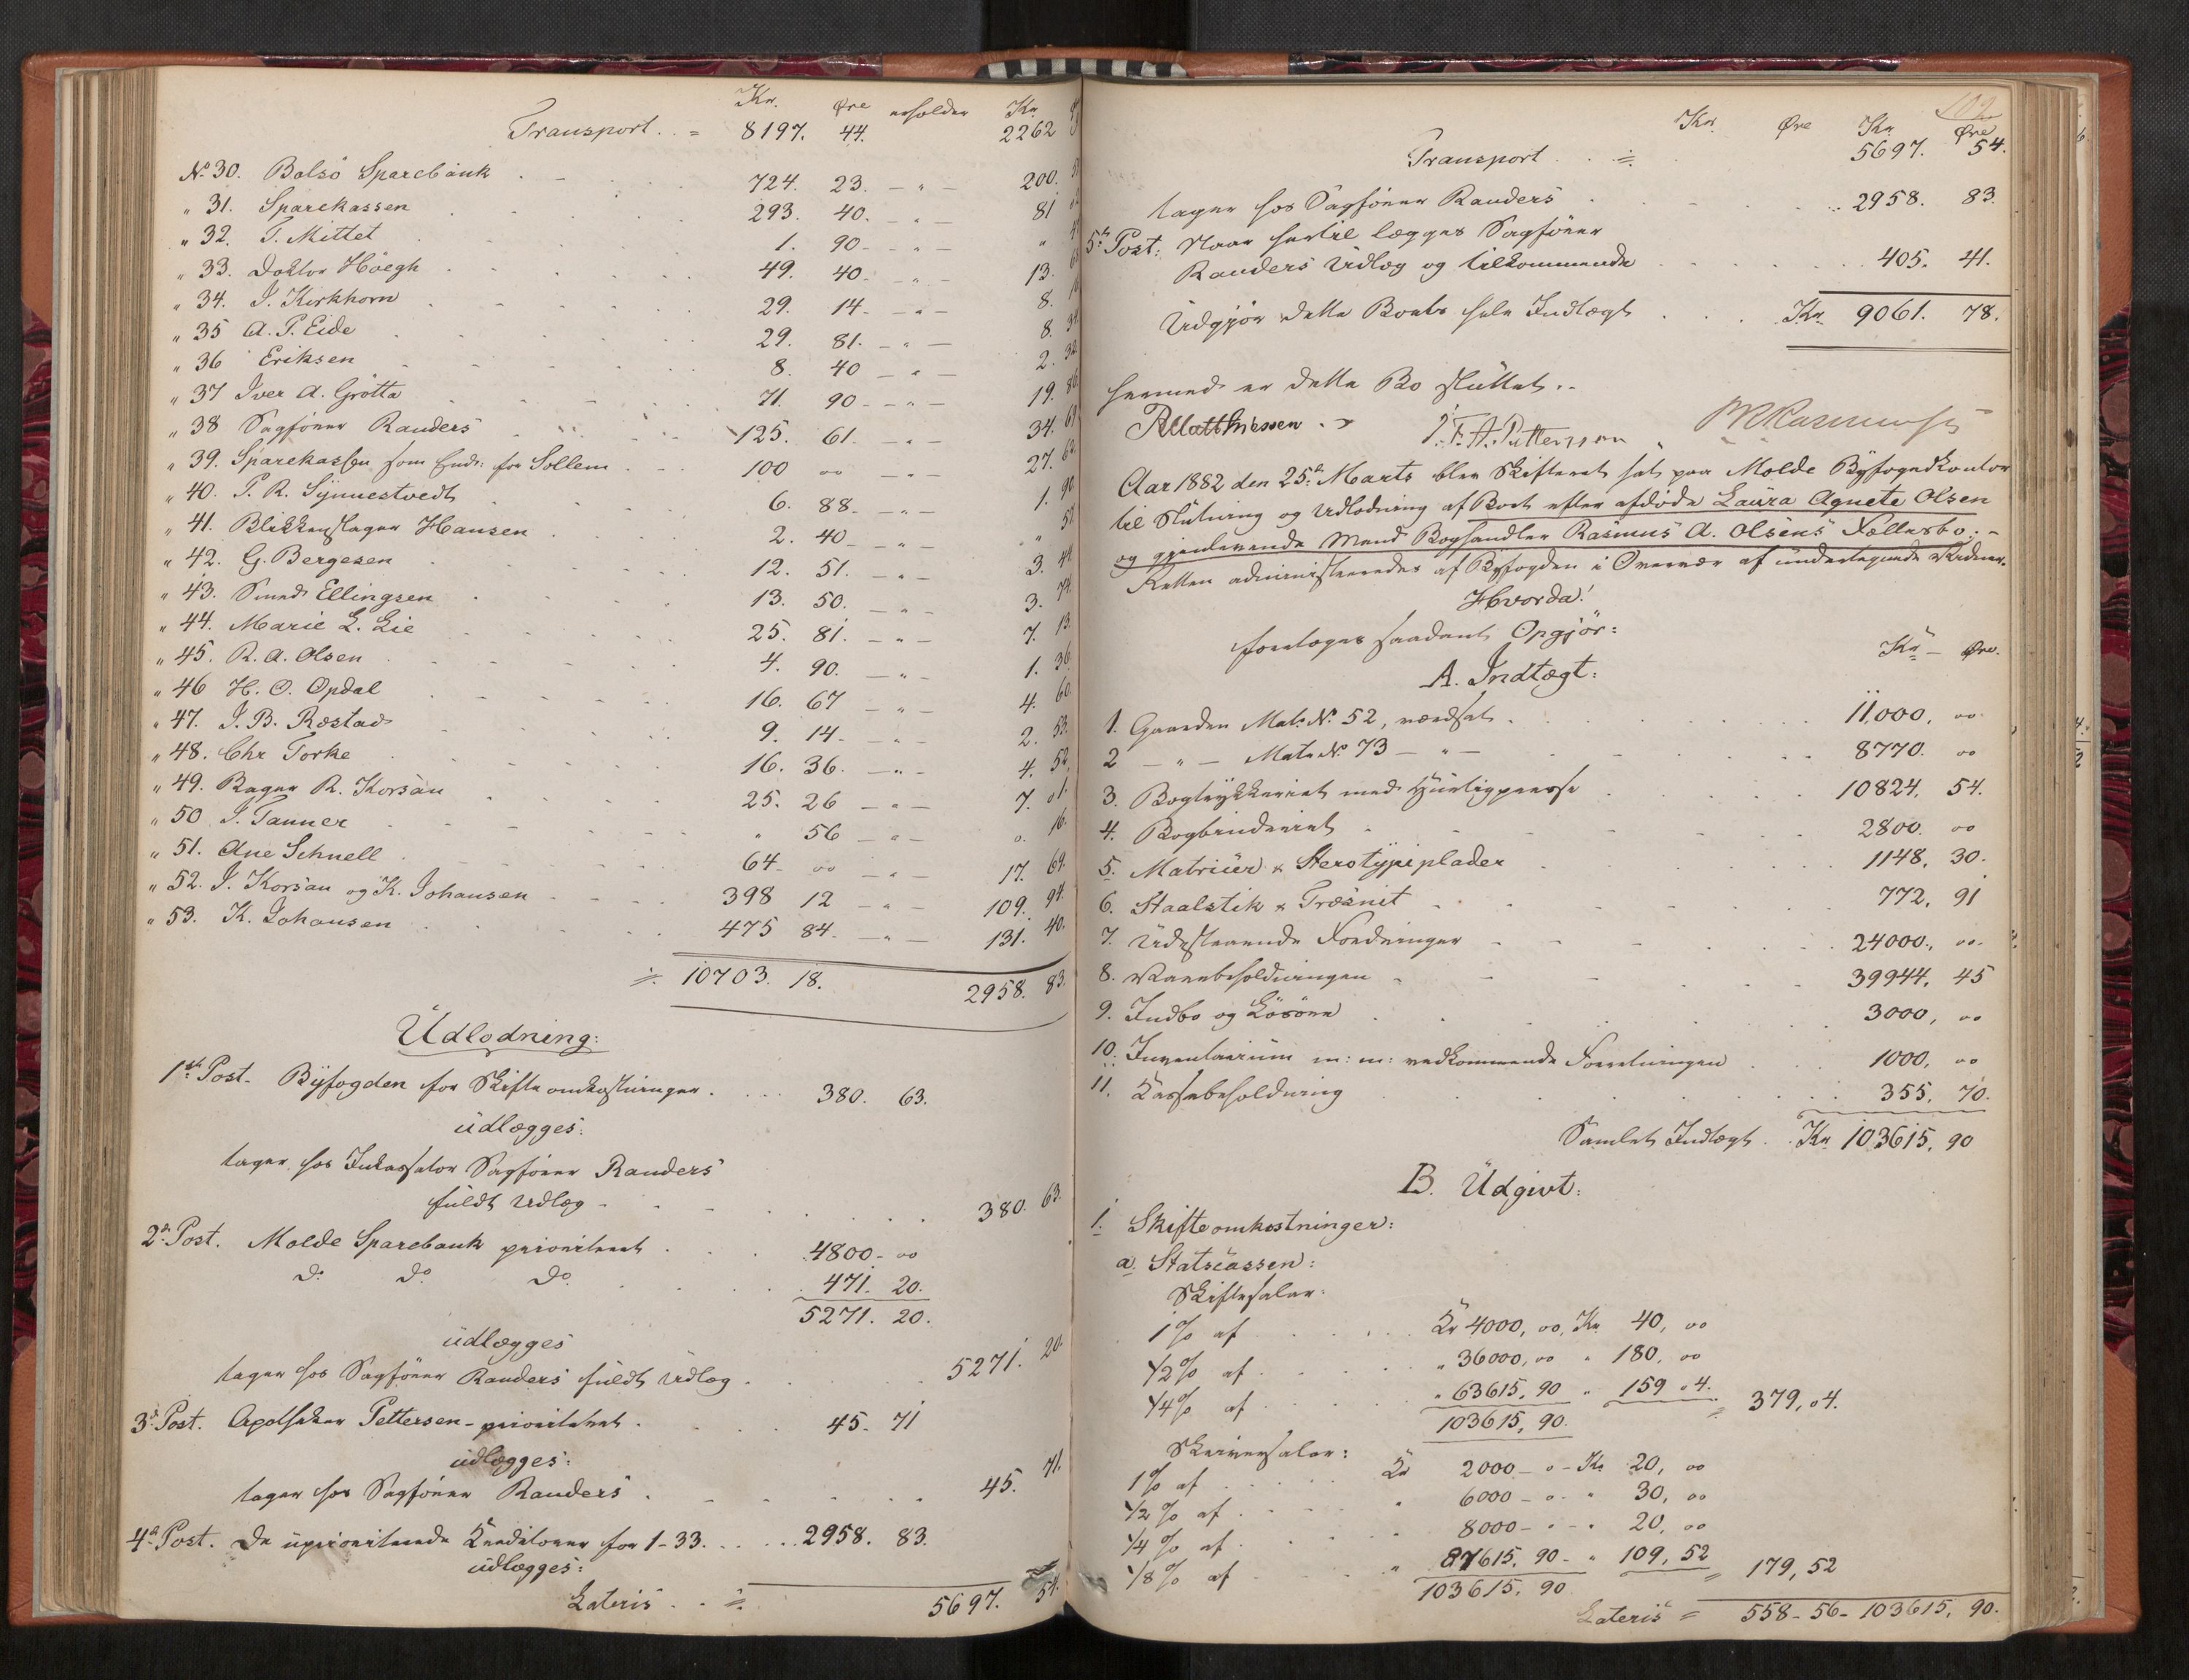 Kr. Øre erholder Kr
Transport . . = 8197. 44. 2262
No 30. Bolsø Sparebank 724. 23. — " — 200.
" 31. Sparekassen 293. 40. — " — 81
" 32. T. Mittet 1. 90 — " — "
" 33. Doktor Høegh 49. 40. — " — 13.
" 34. I. Kirkhorn 29. 14. — " — 8.
" 35 A. P. Eide 29. 81. — " — 8.
" 36 Eriksen 8. 40 — " — 2. 32.
" 37 Iver A. Grotta 71. 90 — " — 19. 86
" 38 Sagfører Randers 125. 61. — " — 34. 69
" 39. Sparekassen som Endr: for Sollem 100 00 — " — 27. 62.
" 40. P. R. Synnestvedt 6. 88. — " — 1. 90
" 41. Blikkenslager Hansen 2. 40 — " — "
" 42. G. Bergesen 12. 51. — " — 3.
" 43. Smed Ellingsen 13. 50. — " — 3. 74.
" 44. Marie L. Lie 25. 81. — " — 7. 13.
" 45. R. A. Olsen 4. 90. — " — 1. 36
" 46 H. O. Opdal 16. 67 — " — 4. 60.
" 47. I. B. Røstad 9. 14. — " — 2. 53.
" 48. Chr Torke 16. 36. — " — 4. 52.
" 49. Bager R. Korsau 25. 26 — " — 7. 01.
" 50. I. Tanner " 56 — " — 0. 16.
" 51. Ane Schnell 64 00 — " — 17. 69.
" 52. I. Korsau og K. Johansen 398 12 — " — 109. 94.
" 53. K. Johansen 475 84. — " — 131. 40.
= 10703. 18. 2958. 83.
Udlodning:
1ste Post. Byfogden for Skifteomkostninger . . . 380. 63.
udlægges:
tager hos Inkassator Sagfører Randers
fuldt Udlæg 380. 63.
2den Post. Molde Sparebank prioriteret 4800 - 00
Do Do Do 471. 20.
5271. 20.
udlægges
tager hos Sagfører Randers fuldt Udlæg . 5271. 20.
3die Post. Apotheker Pettersen - prioriteret . 45. 71
udlægges:
tager hos Sagfører Randers . 45. 71.
4de Post. De uprioriterede Kreditorer for 1-33. . . . 2958. 83.
udlægges:
Lateris . . = 5697. 54.
102
Kr. Øre Kr Øre
Transport . . = 5697. 54.
tager hos Sagfører Randers 2958. 83.
5te Post: Naar hertil lægges Sagfører
Randers Udlæg og tilkommende 405. 41.
Udgjør dette Boets hele Indtægt . . . Kr. 9061. 78.
hermed er dette Bo sluttet. -
RMatthiessen . J. F. A. Pettersson .
Aar 1882 den 25de Marts blev Skifteret sat paa Molde Byfogedkontor
til Slutning og Udlodning af Boet efter afdøde Laura Agnete Olsen
og gjenlevende Mand Boghandler Rasmus A. Olsens Fællesbo. -
Retten administreredes af Byfogden i Overvær af undertegnede Vidner.
Hvorda!
foretoges saadant Opgjør:
Kr — Øre.
A. Indtægt:
1. Gaarden Matr. No. 52, værdsat . 11,000, 00
2 — " — Matr No. 73 — " — 8770. 00
3. Bogtrykkeriet med Hurtigpresse 10824, 54.
4. Bogbinderiet 2800. 00
5. Matricer & Sterotypiplader 1148, 30.
6. Staalstik & Træsnit 772, 91
7. Udestaaende Fordringer 24000, 00.
8. Varebeholdningen 39944, 45
9. Indbo og Løsøre 3000, 00
10. Inventarium m: m: vedkommende Forretningen 1000, 00
11. Kassebeholdning 355, 70.
Samlet Indtægt . . Kr 103615, 90
B. Udgivt:
1. Skifteomkostninger:
a. Statscassen:
Skiftesalær:
1 % af . . . Kr 4000, 00, Kr 40, 00
1/2 % af . . " 36000, 00 " 180, 00
1/4 % af . . " 63615, 90 " 159 04. = 379, 04.
103615, 90.
Skriversalær:
1 % af . . . Kr 2000 - 0 - Kr 20, 00
1/2 % af . " 6000 - 0 - " 30, 00
1/4 % af . " 8000 - " - " 20, 00
1/8 % af . " 87615, 90 - " 109, 52 = 179, 52
103615, 90
Lateris = 558 - 56 - 103615, 90.